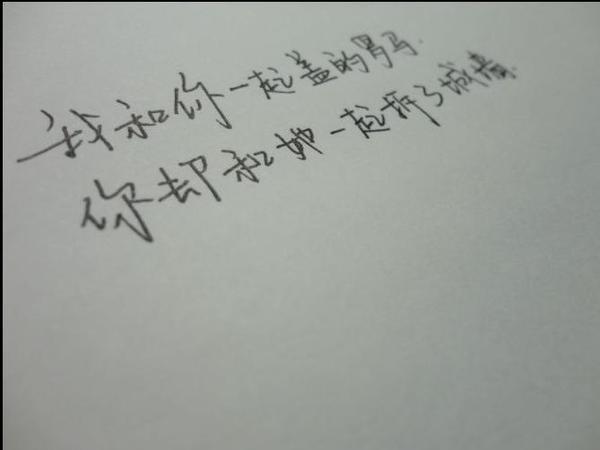 我和你一起盖的罗马.
你却和她一起拆了城墙.